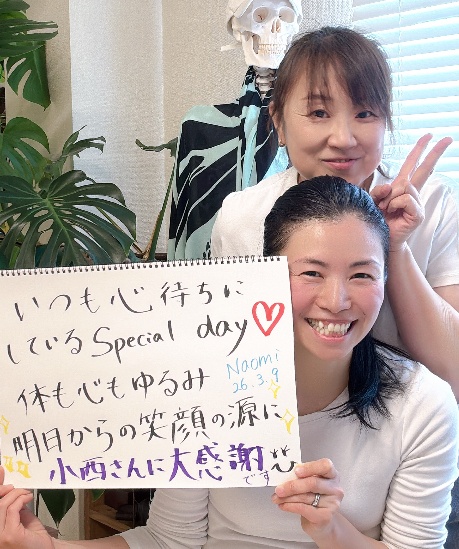 いつも心待ちに
しているSpecial day
体も心もゆるみ
Naomi
26.3.9
明日からの笑顔の源に
小西さんに大感謝
です